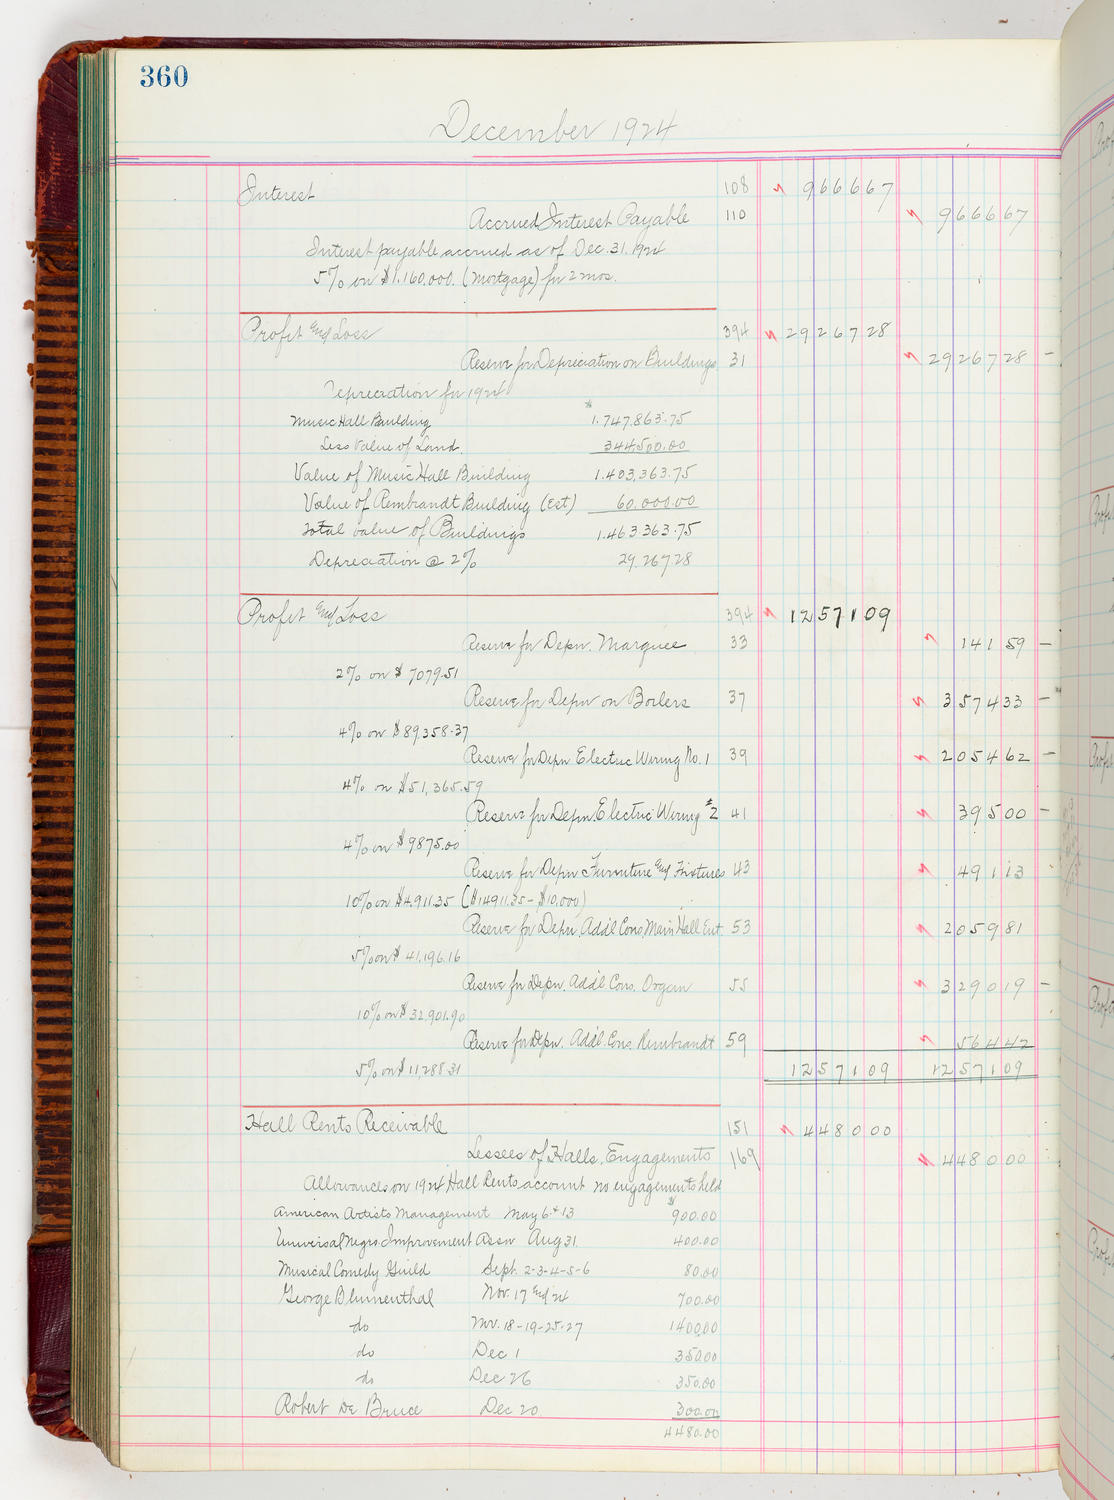 360
December 1924
Interest 108 9 6 6 6 6 7
Accrued Interest Payable 110 9 6 6 6 6 7
Interest payable accrued as of Dec. 31. 1924
5% on $1.160.000. (Mortgage) for 2 mos.
Profit and Loss 394 2 9 2 6 7 2 8
Reserve for Depreciation on Buildings 31 2 9 2 6 7 2 8 -
Depreciation for 1924
Music Hall Building 1.747.863.75
Less Value of Land. 344,500.00
Value of Music Hall Building 1.403,363.75
Value of Rembrandt Building (Est) 60.000.00
Total value of Buildings 1.463363.75
Depreciation @ 2% 29.267.28
Profit and Loss 394 1 2 5 7 1 09
Reserve for Depn. Marquee 33 1 4 1 59 -
2% on $ 7079.51
Reserve for Depn on Boilers 37 3 5 7 4 33 -
4% on $89,358.37
Reserve for Depn Electric Wiring No. 1 39 2 0 5 4 62 -
4% on $51,365.59
Reserve for Depn. Electric Wiring #2 41 3 9 5 00 -
4% on $9875.00
Reserve for Depn Furniture and Fixtures 43 4 9 1 13
10% on $4,911.35 ($14911.35 - $10,000)
Reserve for Depn. Add'l Cons Main Hall Ent. 53 2 0 5 9 81
5% on $ 41,196.16
Reserve for Depn. Add'l. Cons. Organ 55 3 2 9 0 19 -
10% on $ 32,901.90
Reserve for Depn. Add'l. Cons. Rembrandt 59 5 6 4 42
5% on $ 11,288.31 1 2 5 7 1 09 1 2 5 7 1 09
Hall Rents Receivable 151 4 4 8 0 00
Lessees of Halls, Engagements 169 4 4 8 0 00
Allowances on 1924 Hall Rents account no engagements held
American Artists Management May 6 + 13 $900.00
Universal Negro Improvement Assn Aug 31. 400.00
Musical Comedy Guild Sept. 2-3-4-5-6 80.00
George Blumenthal Nov. 17 and 24 700.00
do Nov. 18-19-25-27 1400.00
do Dec 1 350.00
do Dec 26 350.00
Robert De Bruce Dec 20. 300.00
4480.00